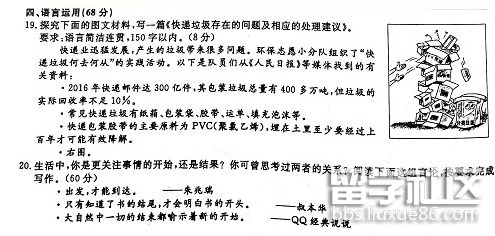 四、语言运用(68分)
19.探究下面的图文材料,写一篇《快递垃圾存在的问题及相应的处理建议》。
要求:语言简洁连贯,150字以内。(8分)
快递业迅猛发展,产生的垃圾带来很多问题。环保志愿小分队组织了“快
递垃圾何去何从”的实践活动。以下是队员们从《人民日报》等媒体找到的有
关资料:
·2016年快递邮件达300亿件,其包装垃圾总量有400多万吨,但垃圾的
实际回收率不足10%。
·常见快递垃圾有纸箱、包装袋、胶带、运单、填充泡沫等。
·快递包装胶带的主要原料为PVC(聚氯乙烯),埋在土里至少要经过上
百年才可能有效降解。
·右图。
20.生活中,你是更关注事情的开始,还是结果?你可曾思考过两者的关系?阅读下面这组言论,按要求完成
写作。(60分)
·出发,才能到达。 ——朱兆瑞
·只有知道了书的结尾,才会明白书的开头。 ——叔本华
·大自然中一切的结束都喻示着新的开始。 ——QQ经典说说
留学社区
bbs.liuxue86.com